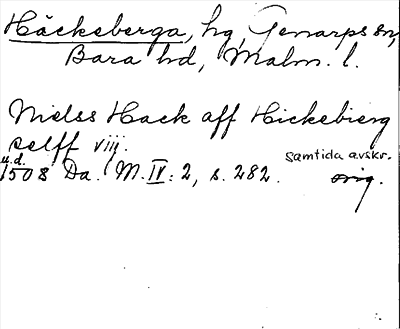 Häckeberga, hg, Genarps sn,
Bara hd, Malm. l.
Nielss Hack aff Hickebierg
selff viij.
u.d.
1508 Da. M. IV: 2, s. 282. samtida avskr.
orig.